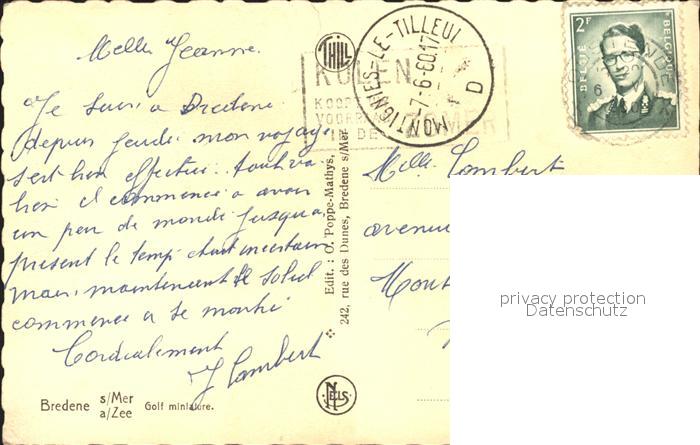 Melle Jeanne.
Je suis a Bredene
depuis jeudi mon voyage
s'est bien effectué. tout va
bien il commence a avoir
un peu de monde jusqu'a
présent le temp était incertain
mais maintenant le soleil
commence a se montré
Cordialement
J Lambert
Bredene s/Mer
a/Zee Golf miniature.
THILL
Edit.: O. Poppe-Mathys,
242, rue des Dunes, Bredene s/Mer
NELS
MONTIGNIES-LE-TILLEUL
-7-6-60.17
D
KOLEN
KOOPT
DE ZOMER
2F
BELGIE BELGIQUE
Melle Lambert
avenue
Mont
privacy protection
Datenschutz